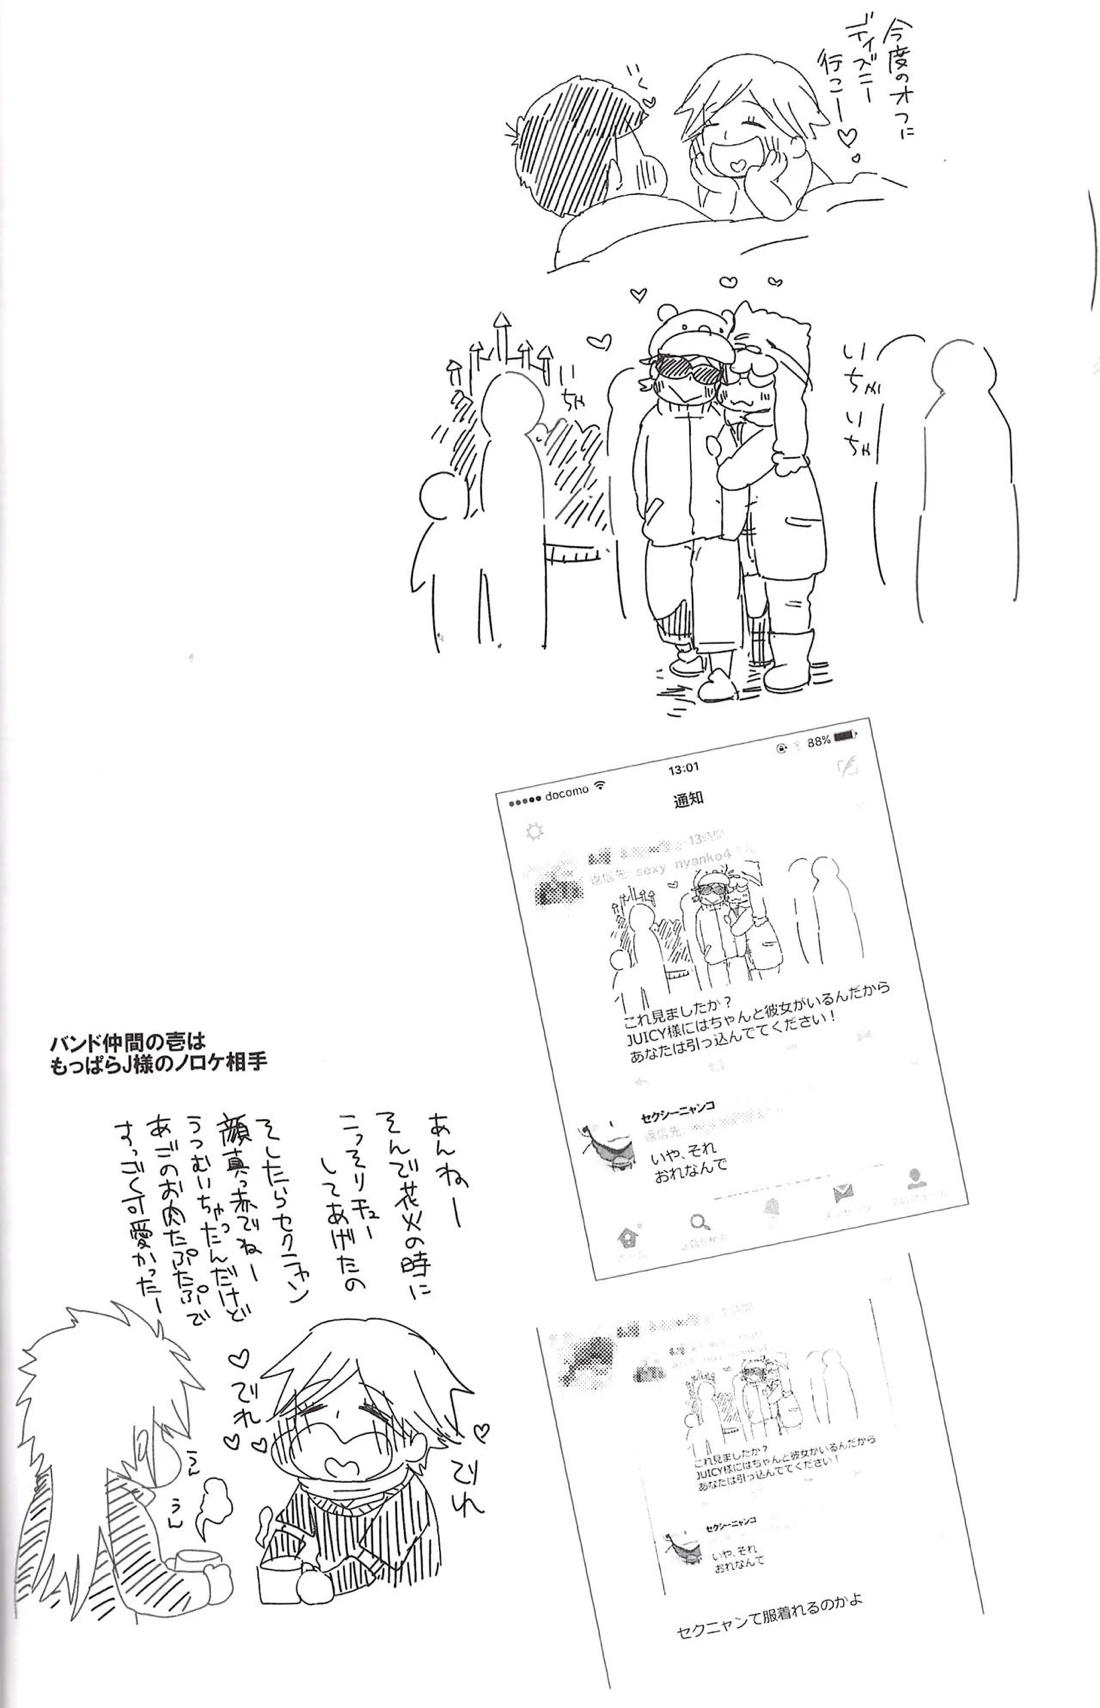 今度のオフに
ディズニー
行こー♡
いちゃ
いちゃ
いちゃ
docomo
13:01
88%
通知
13時間
返信先: sexy_nyanko4さん
これ見ましたか？
JUICY様にはちゃんと彼女がいるんだから
あなたは引っ込んでてください！
セクシーニャンコ
返信先:
いや、それ
おれなんで
これ見ましたか？
JUICY様にはちゃんと彼女がいるんだから
あなたは引っ込んでてください！
セクシーニャンコ
いや、それ
おれなんで
セクニャンて服着れるのかよ
バンド仲間の壱は
もっぱらJ様のノロケ相手
あんねー
そんで花火の時に
こっそりチュー
してあげたの
そしたらセクニャン
顔真っ赤でねー
うつむいちゃったんだけど
あごのお肉たぷたぷで
すっごく可愛かったー
でれ
でれ
うん
うん